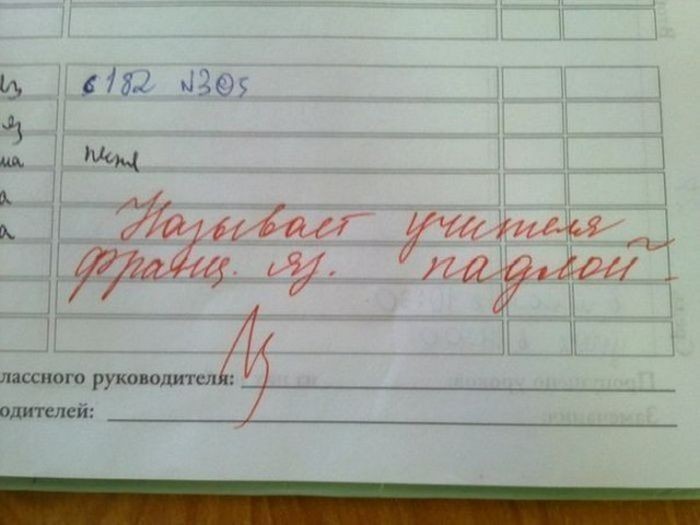 из с 182 N305
яз
ма песня
а
а Называет учителя
франц. яз. падлой
лассного руководителя:
одителей: